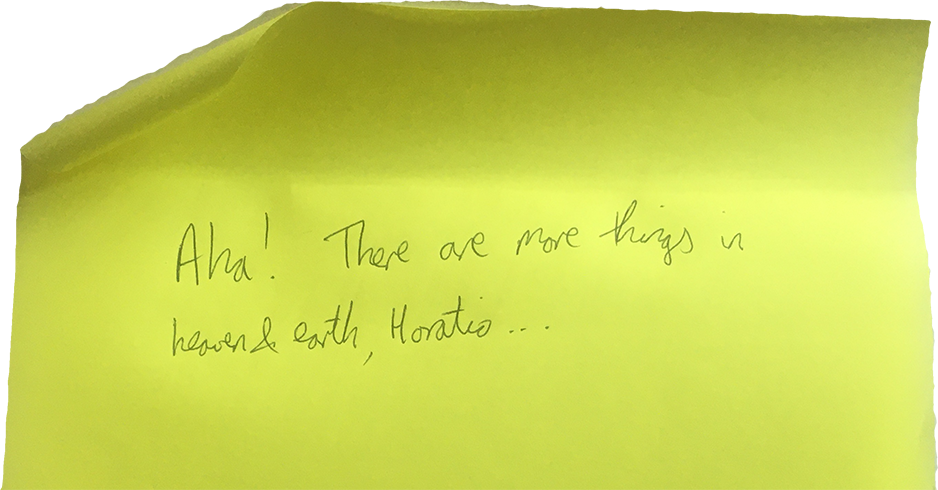 Aha! There are more things in
heaven & earth, Horatio...